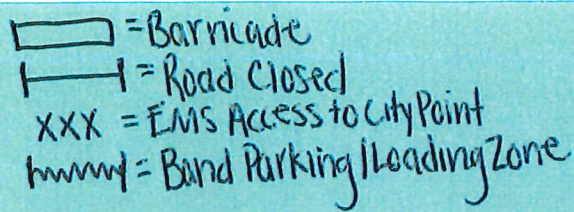 = Barricade
= Road Closed
XXX = EMS Access to City Point
= Band Parking / Loading Zone